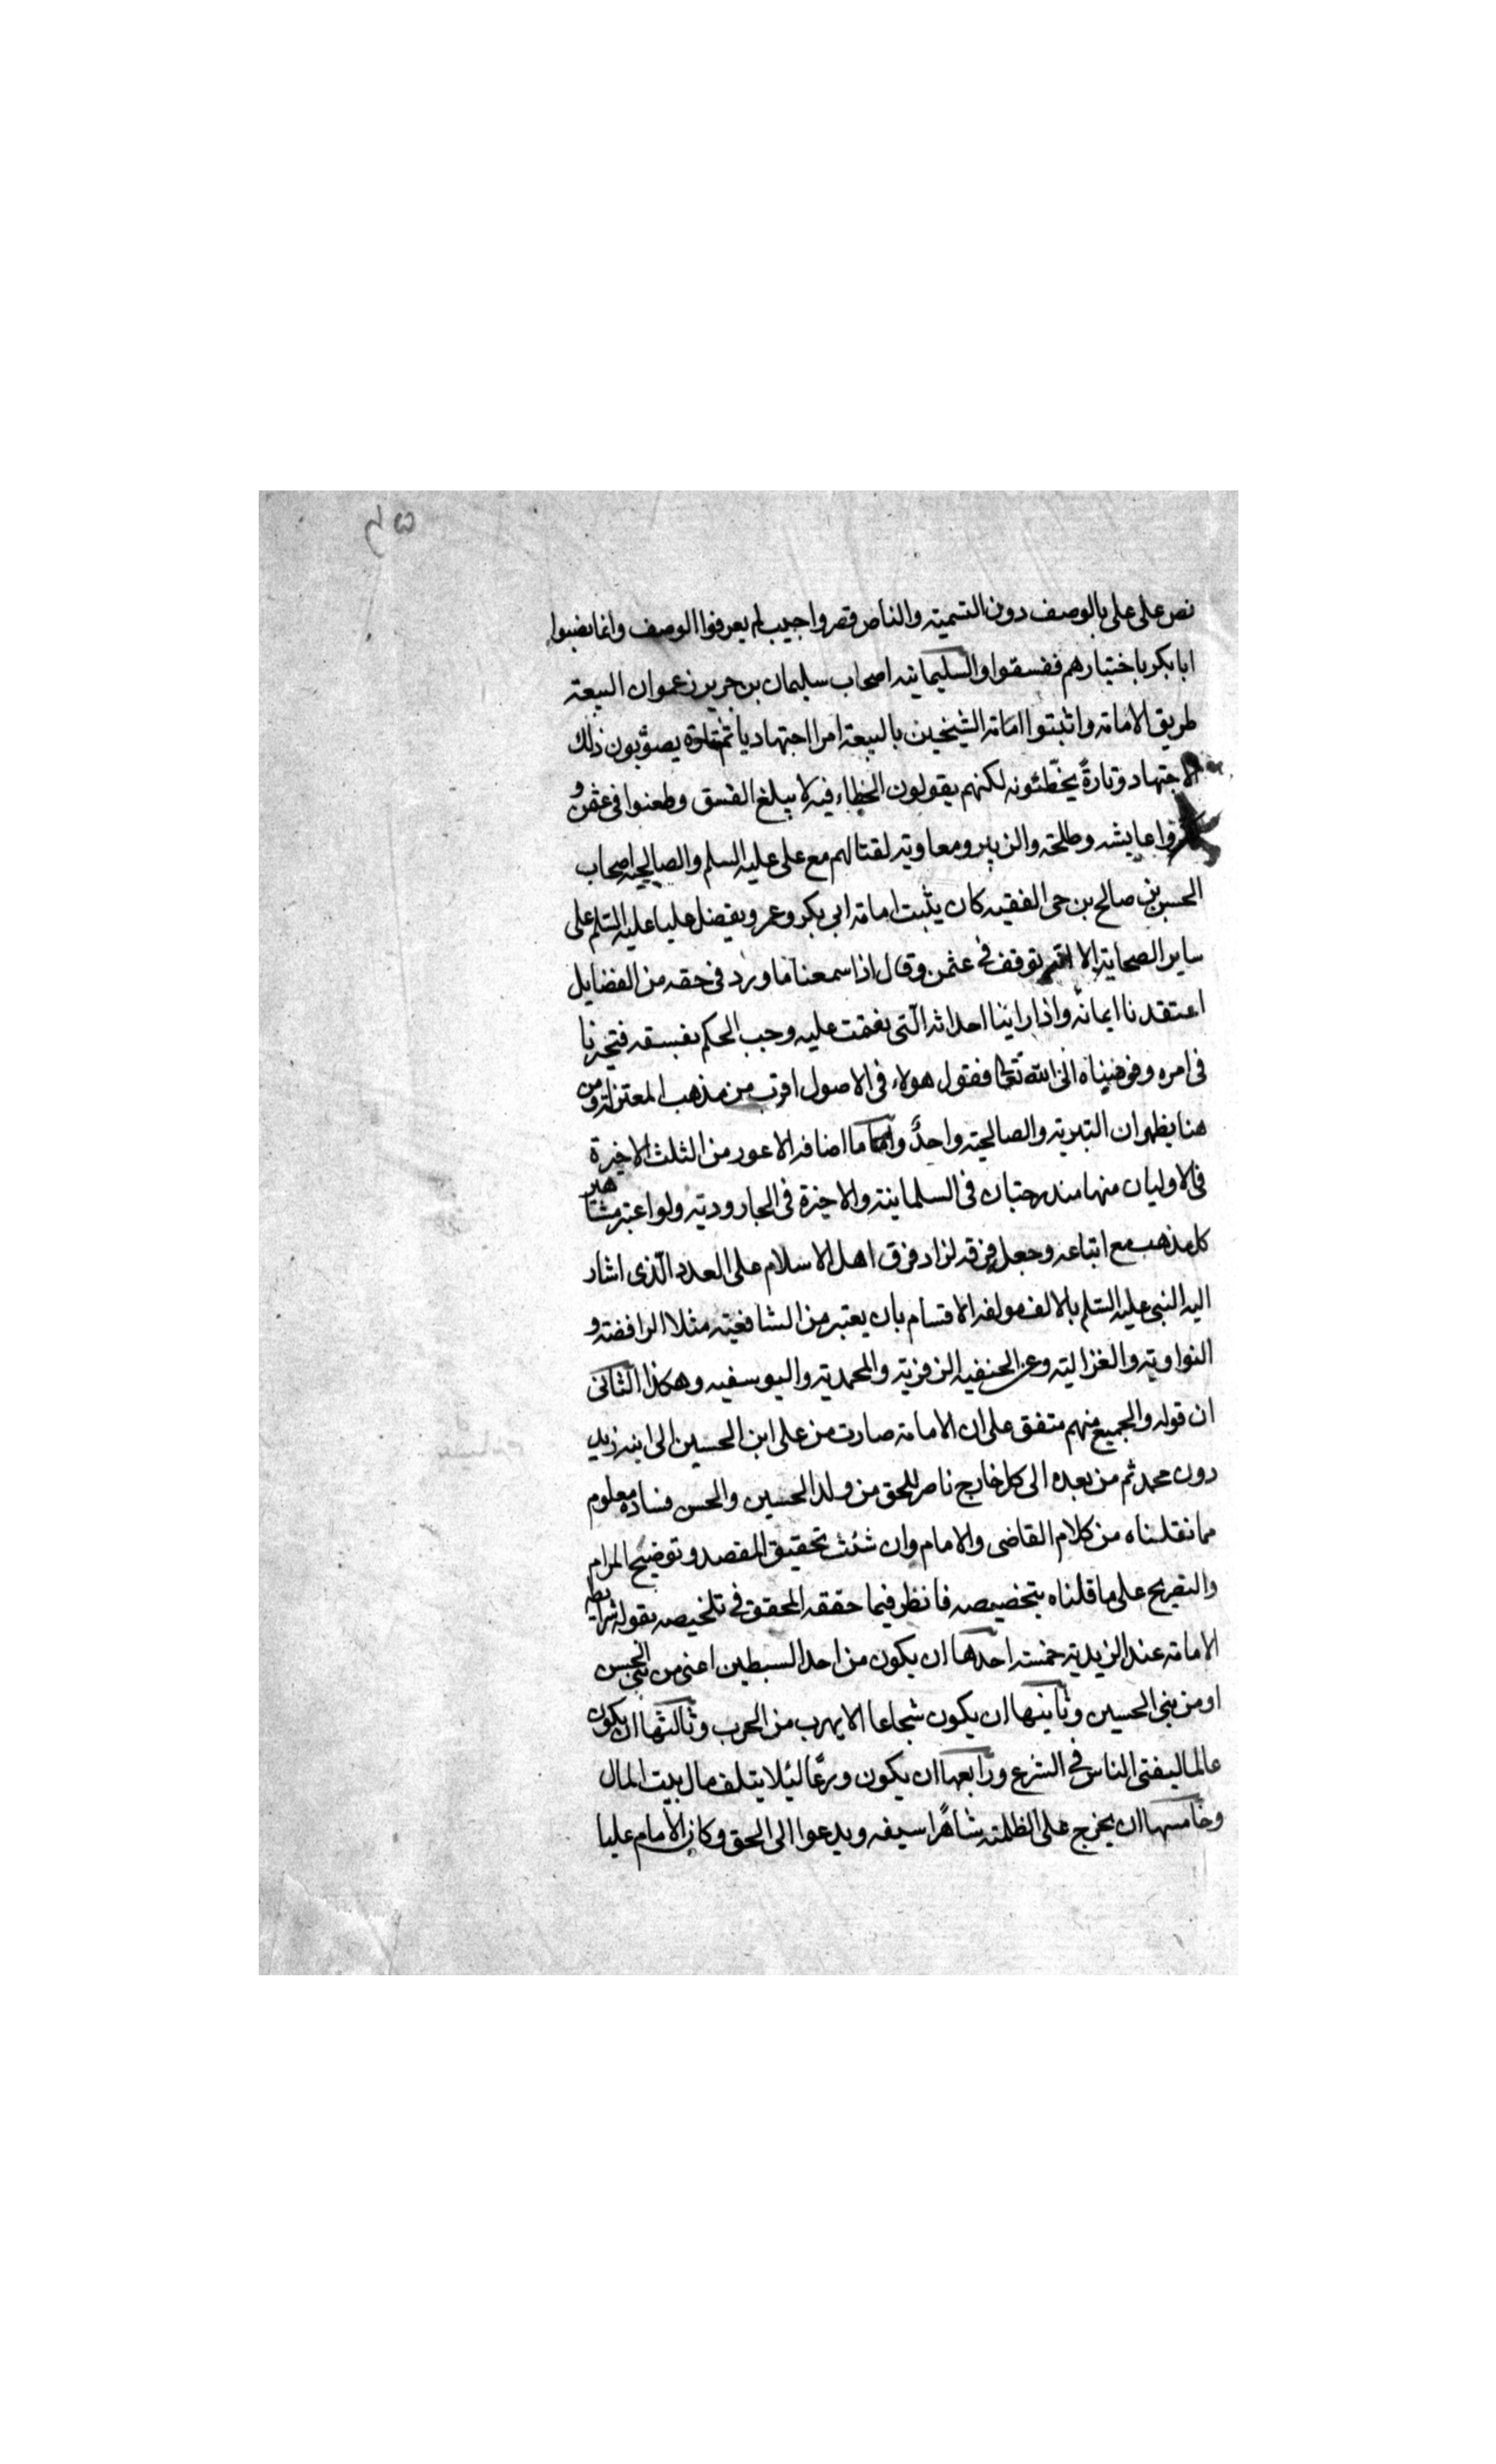 نص على علي بالوصف دون التسمية والناس قصروا حيث لم يعرفوا الوصف وانما نصبوا
ابا بكر باختيارهم ففسقوا والسليمانية اصحاب سليمان بن جرير زعموا ان البيعة
طريق الامامة واثبتوا امامة الشيخين بالبيعة امرا اجتهاديا ثم تارة يصوّبون ذلك
الاجتهاد وتارةً يخطّئونه لكنهم يقولون الخطاء فيه لا يبلغ الفسق وطعنوا في عثمن و
كفروا عايشه وطلحة والزبير ومعاوية لقتالهم مع علي عليه السلم والصالحية اصحاب
الحسن بن صالح بن حى الفقيه كان يثبت امامة ابي بكر وعمر ويفضل عليا عليه السّلم على
ساير الصحابة الا انه توقف في عثمن وقال اذا سمعنا ما ورد في حقه من الفضايل
اعتقدنا ايمانه واذا راينا احداثه الّتى نقمت عليه وجب الحكم بفسقه فتحيرنا
في امره وفوضناه الى الله تعالى فقول هولاء في الاصول اقرب من مذهب المعتزلة ومن
هنا يظهر ان البترية والصالحية واحدٌ واما ما اضافه الاعور من الثلث الاخيرة
فالاوليان منها مندرجتان في السلمانية والاخيرة في الجارودية ولو اعتبر مشاهير
كل مذهب مع اتباعه وجعل فرقة لزاد فرق اهل الاسلام على العدد الّذى اشار
اليه النبي عليه السّلم بالالف مولفة الاقسام بان يعتبر من الشافعية مثلا الرافضة و
النواوية والغزالية وعن الحنفية الزفرية والمحمدية واليوسفيه وهكذا الثانى
ان قوله والجميع منهم متفق على ان الامامة صارت من على ابن الحسين الى ابنه زيد
دون محمد ثم من بعده الى كل خارج ناصر للحق من ولد الحسين والحسن فساده معلوم
مما نقلناه من كلام القاضى والامام وان شئت تحقيق المقصد وتوضيح المرام
والتصريح على ما قلناه بتخصيصه فانظر فيما حققه المحقق في تلخيصه بقوله شرايط
الامامة عند الزيدية خمسة احدها ان يكون من احد السبطين اعنى من بنى الحسن
او من بنى الحسين وثانيها ان يكون شجاعا لا يهرب من الحرب وثالثها ان يكون
عالما ليفتى الناس في الشرع ورابعها ان يكون ورعًا لئلا يتلف مال بيت المال
وخامسها ان يخرج على الظلمة شاهرًا سيفه ويدعوا الى الحق وكان الامام عليا